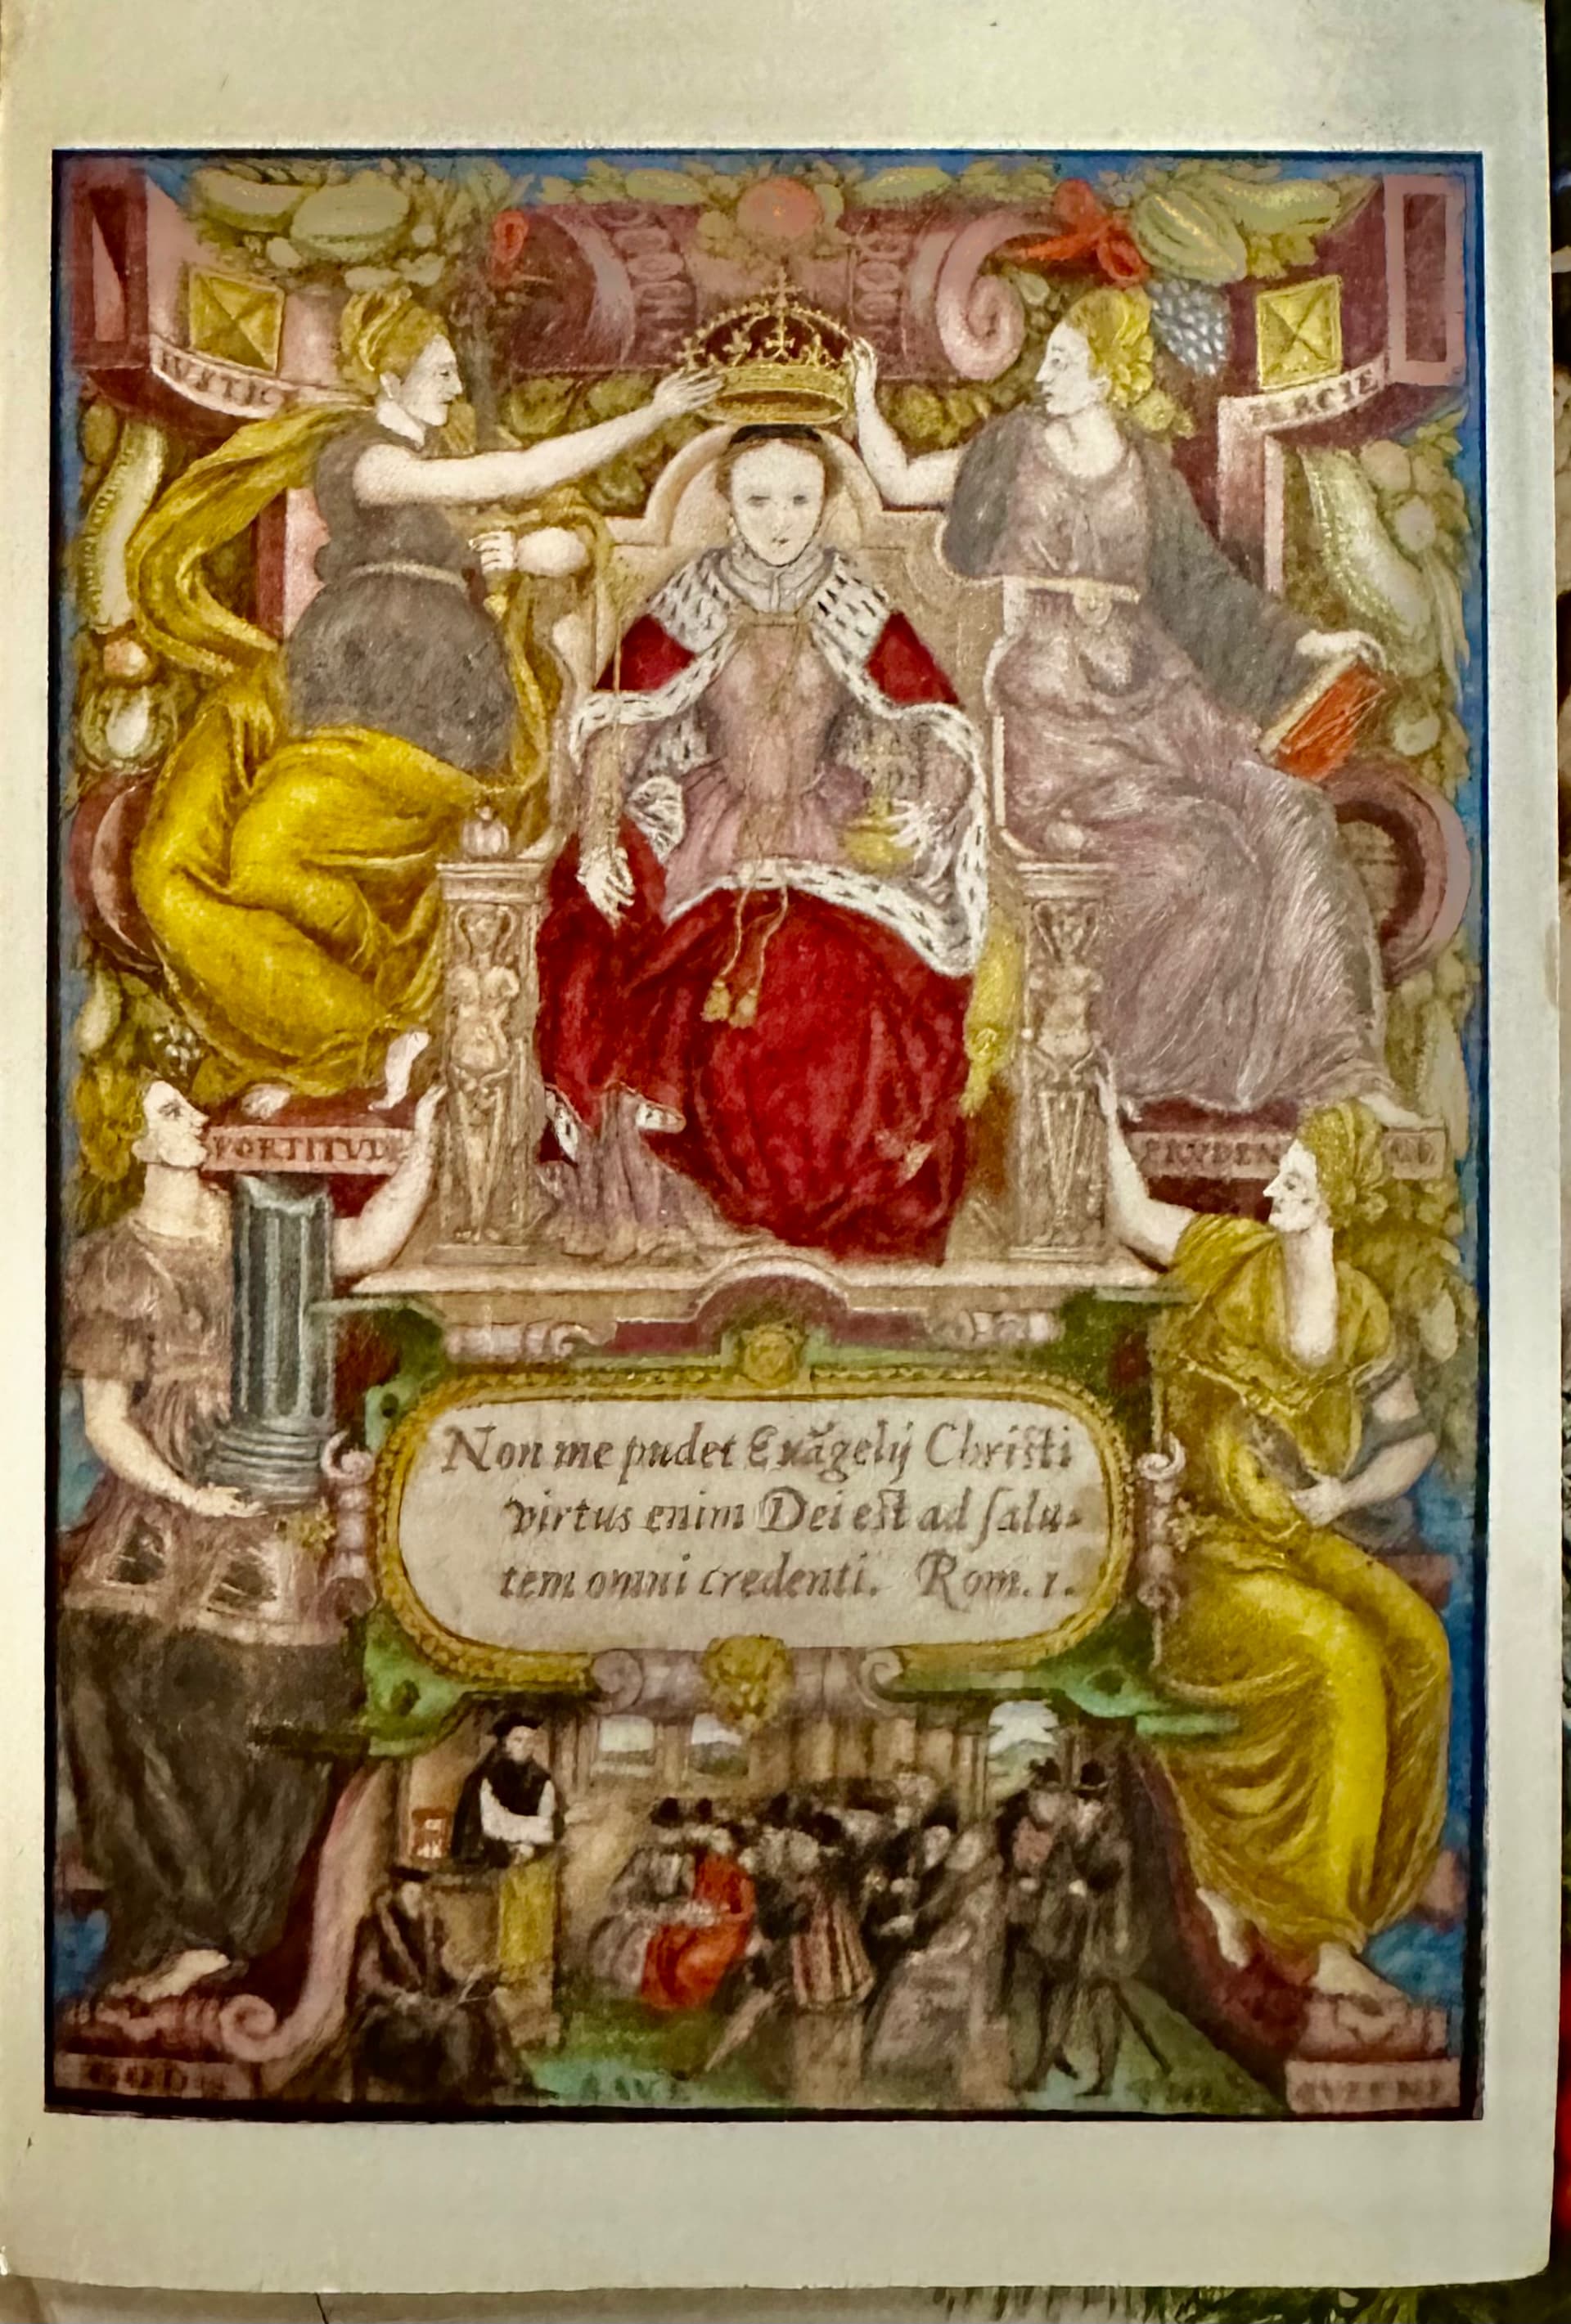 IVSTICE
MERCIE
FORTITUD
PRVDEN CE
Non me pudet Evãgelij Christi
virtus enim Dei est ad salu-
tem omni credenti. Rom. 1.
GOD
SAVE
THE
QVEENE